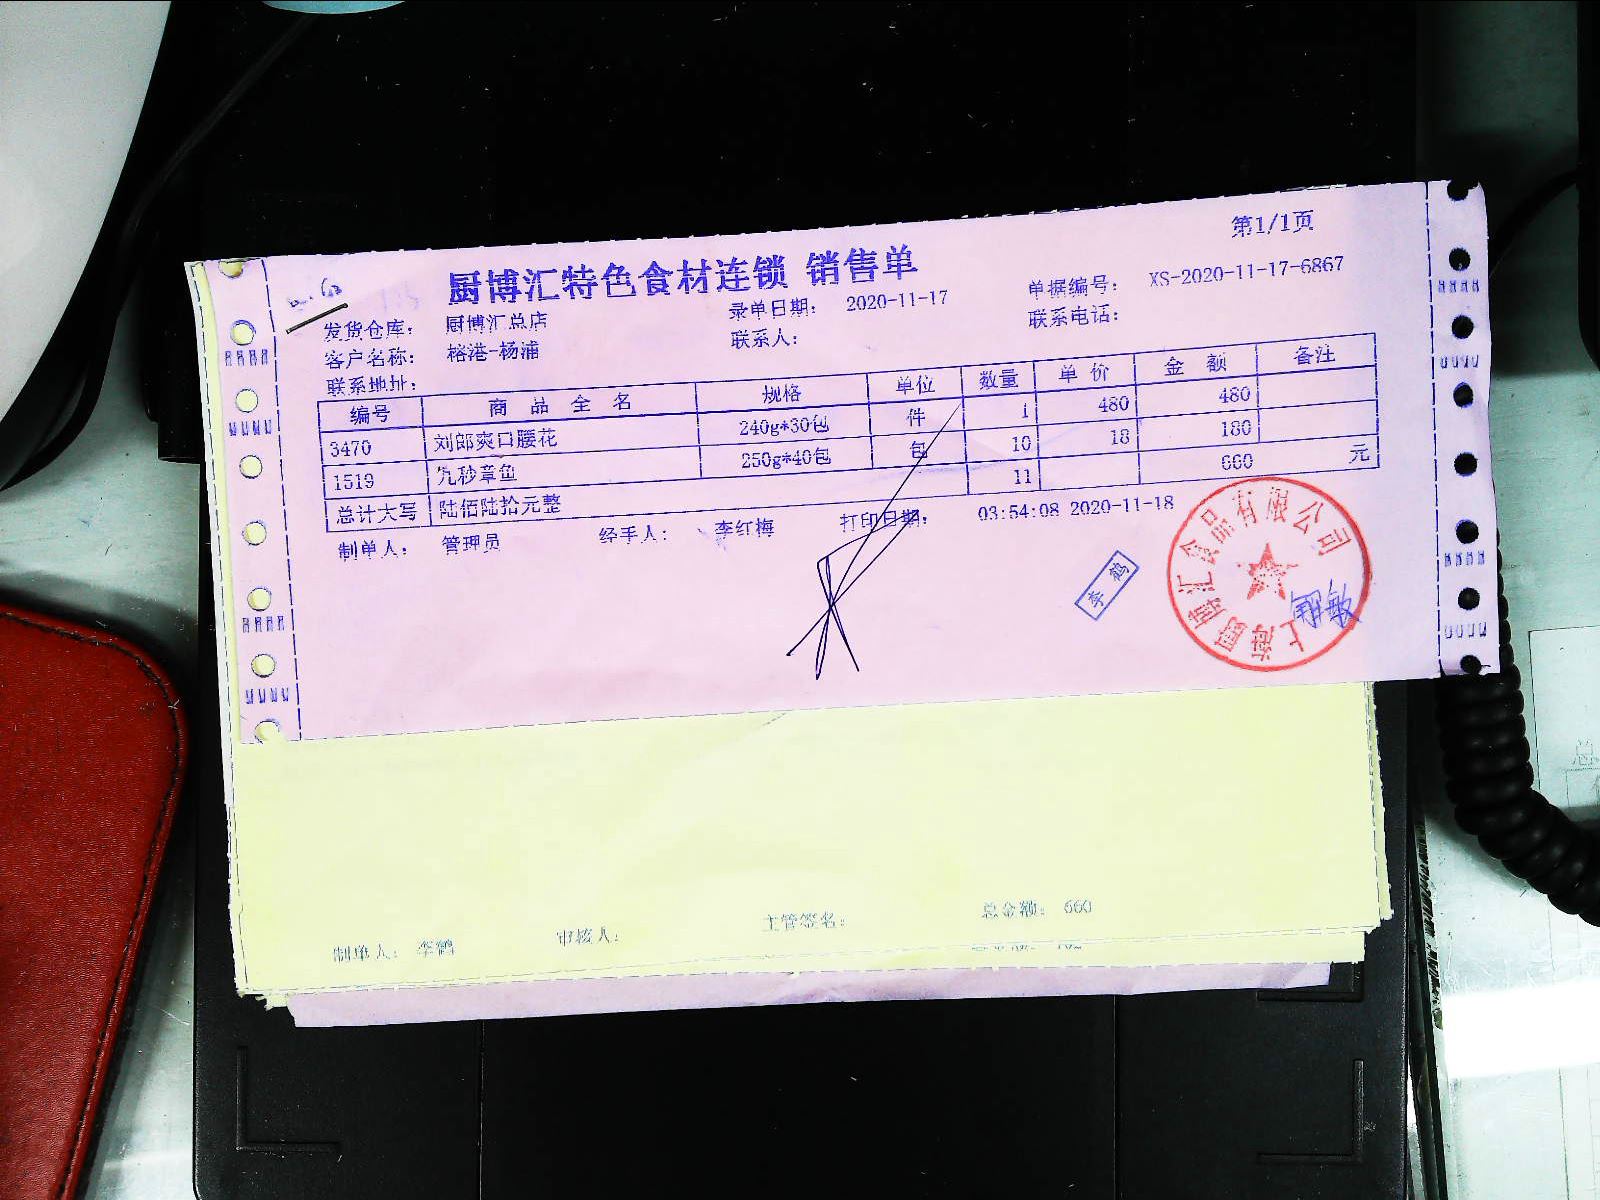 第1/1页
厨博汇特色食材连锁 销售单
发货仓库： 厨博汇总店 录单日期： 2020-11-17 单据编号： XS-2020-11-17-6867
客户名称： 榕港-杨浦 联系人： 联系电话：
联系地址：
编号 商品全名 规格 单位 数量 单价 金额 备注
3470 刘郎爽口腰花 240g*30包 件 1 480 480
1519 九秒章鱼 250g*40包 包 10 18 180
总计大写 陆佰陆拾元整 11 660 元
制单人： 管理员 经手人： 李红梅 打印日期： 03:54:08 2020-11-18
李鹤
上海厨博汇食品有限公司
制单人： 李鹤 审核人： 主管签名： 总金额： 660